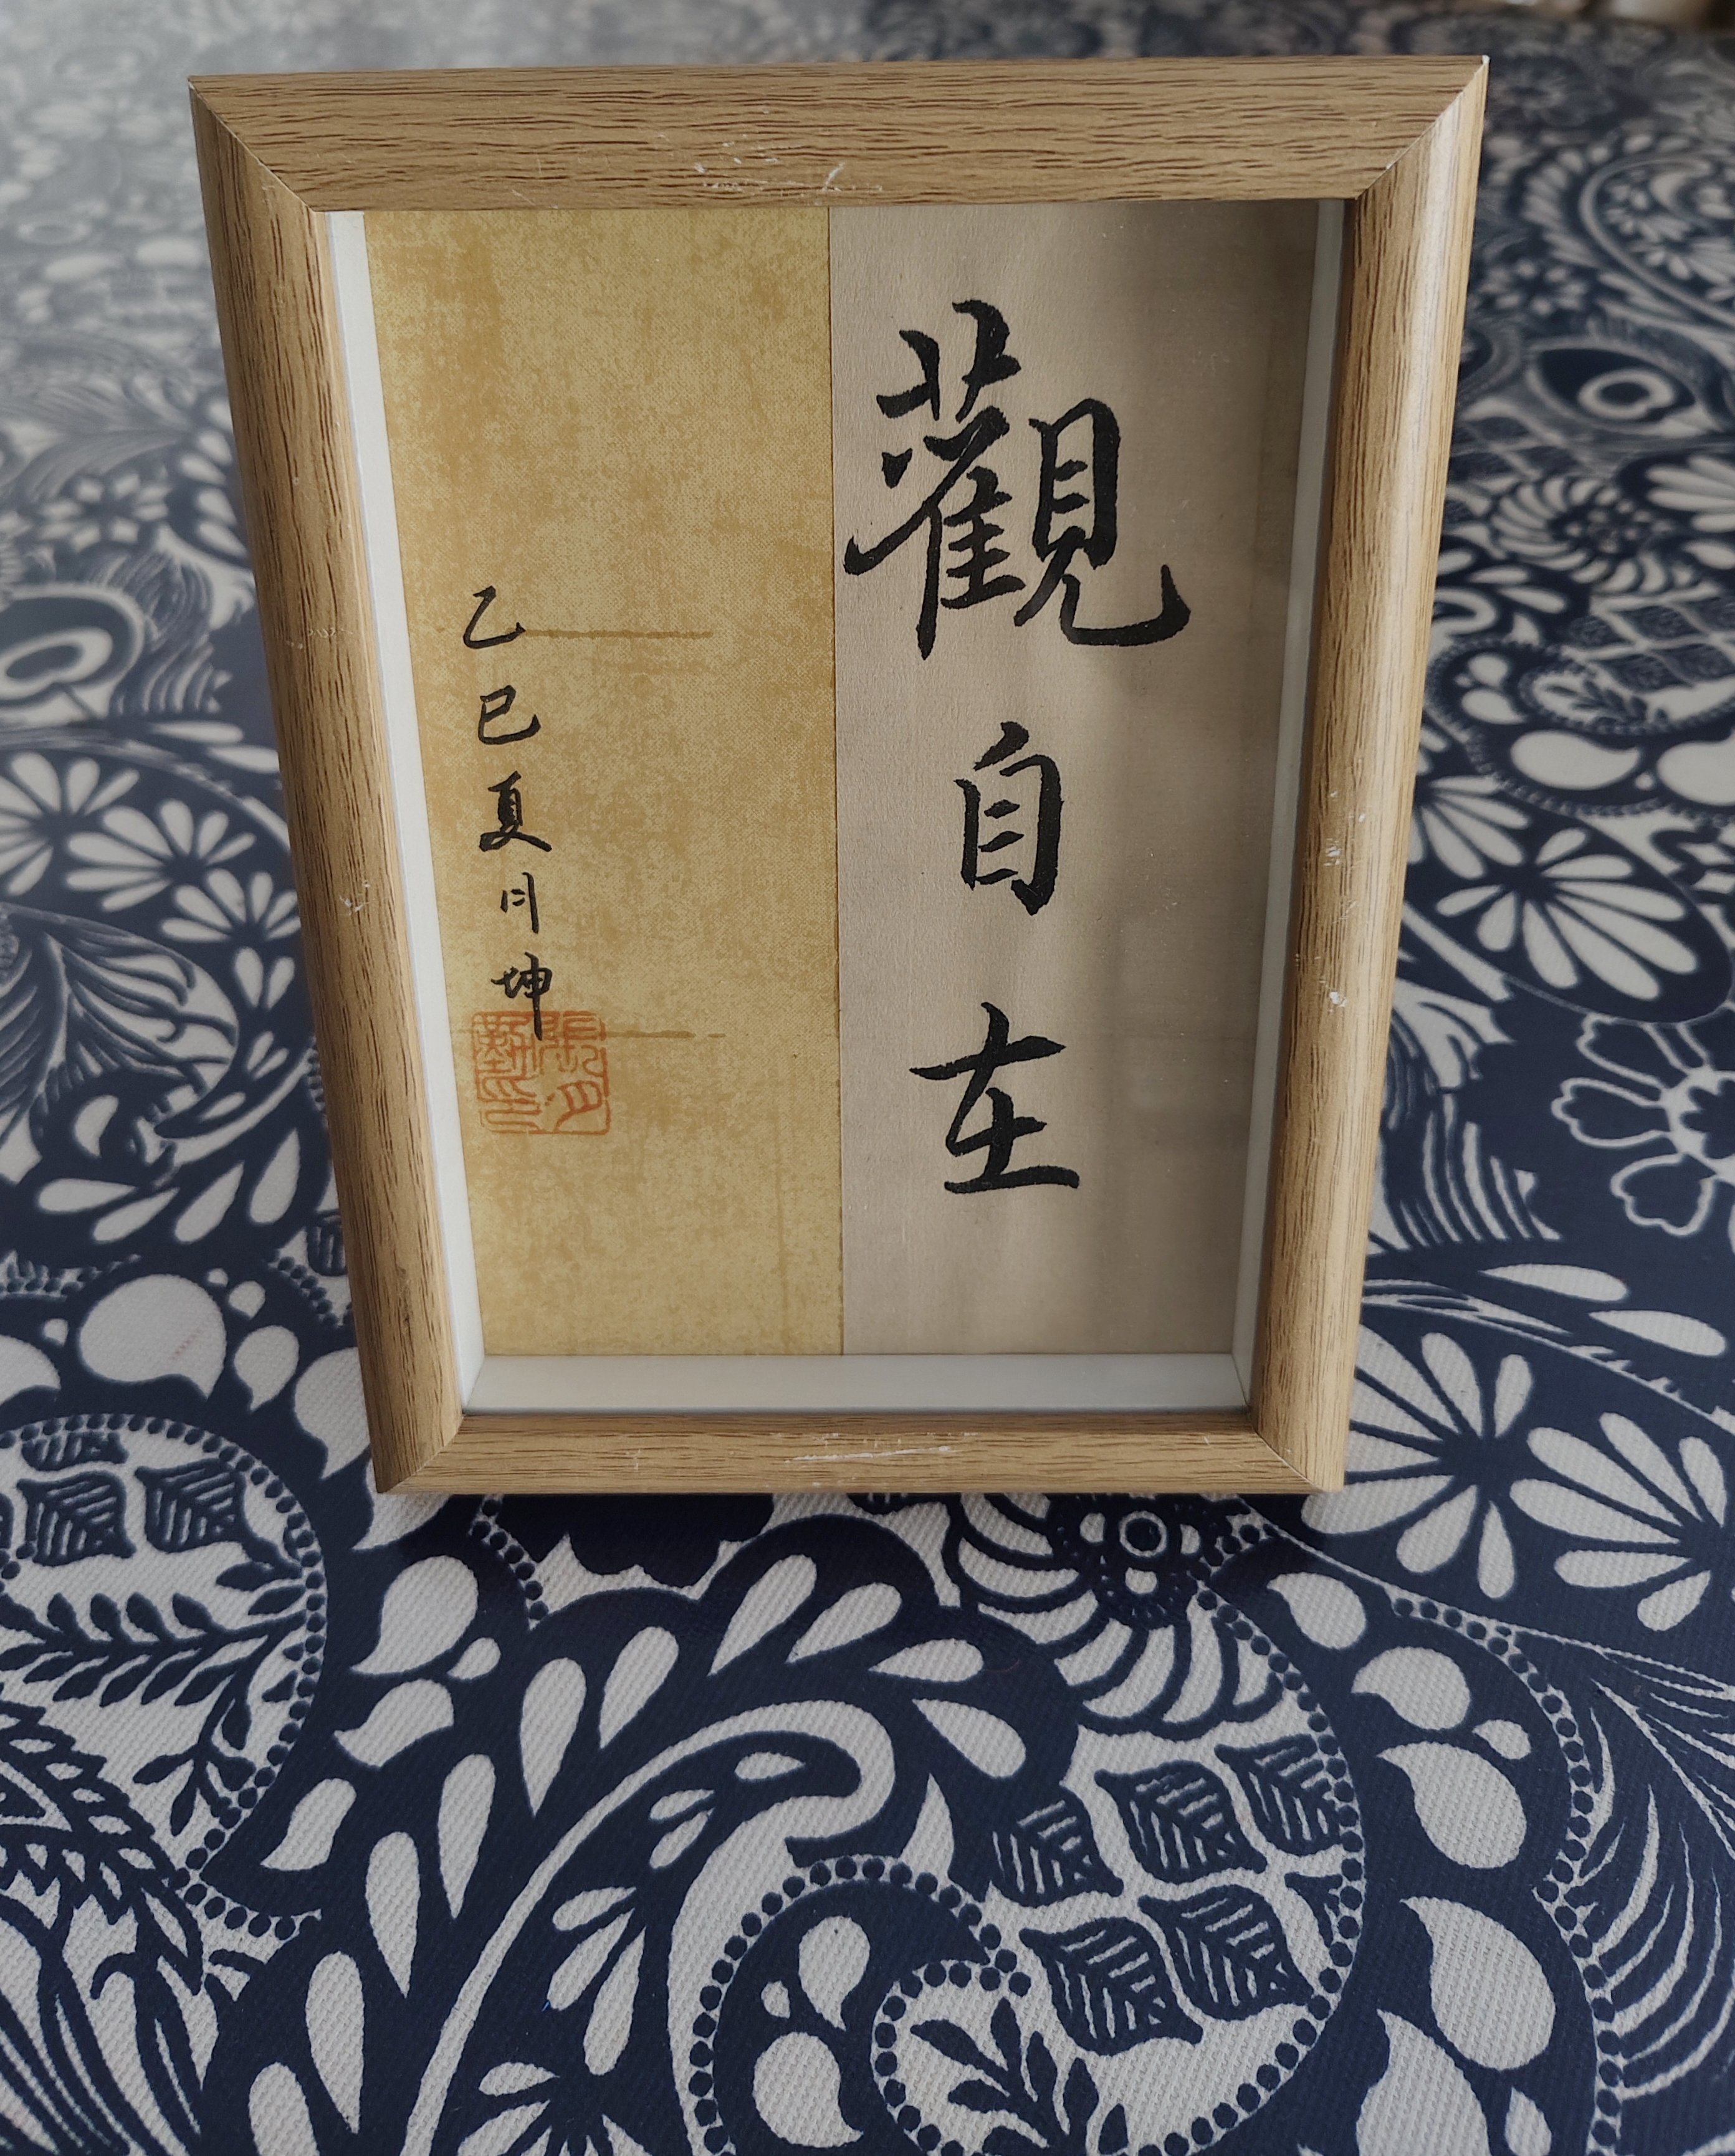 觀自在
乙巳夏月坤